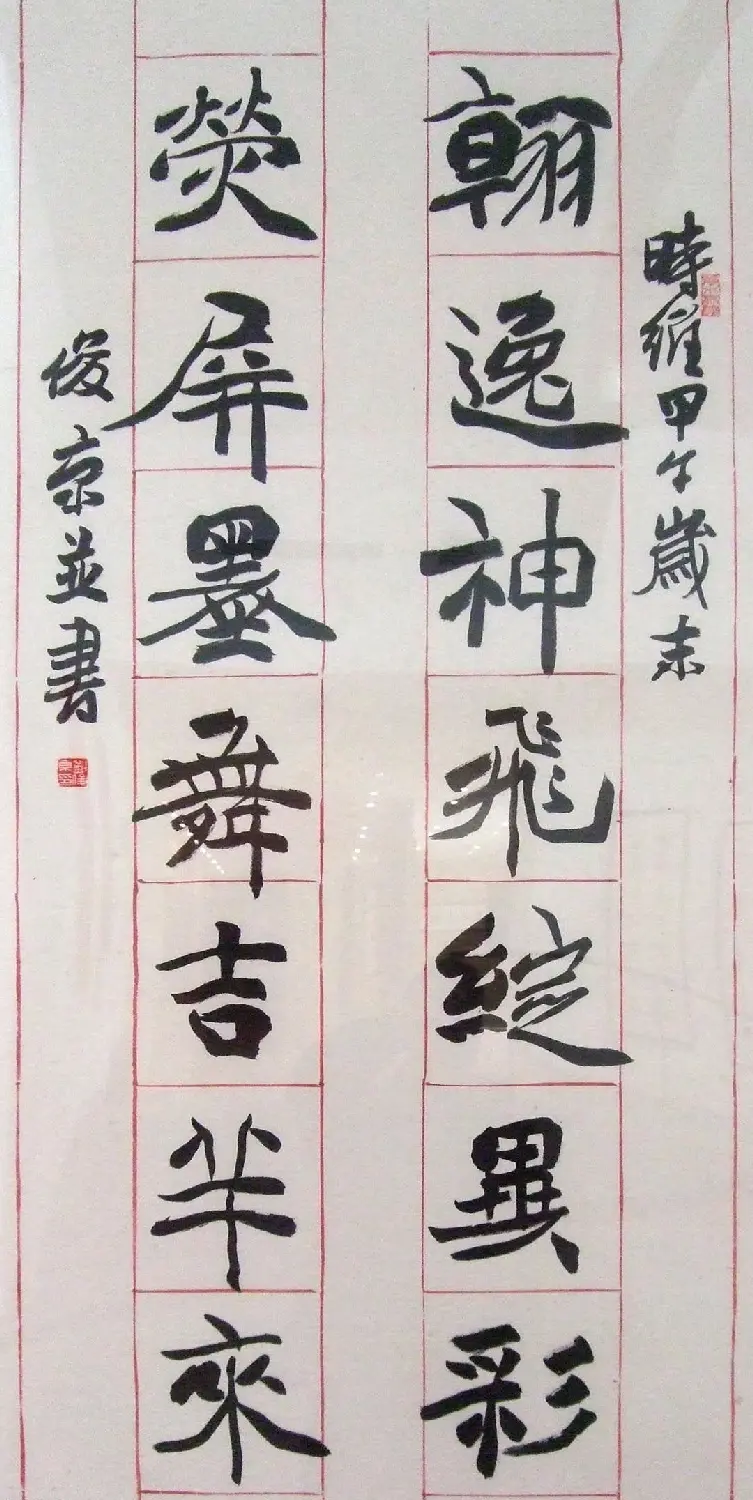 時維甲午歲末
翰逸神飛綻異彩
熒屏墨舞吉羊來
俊京並書